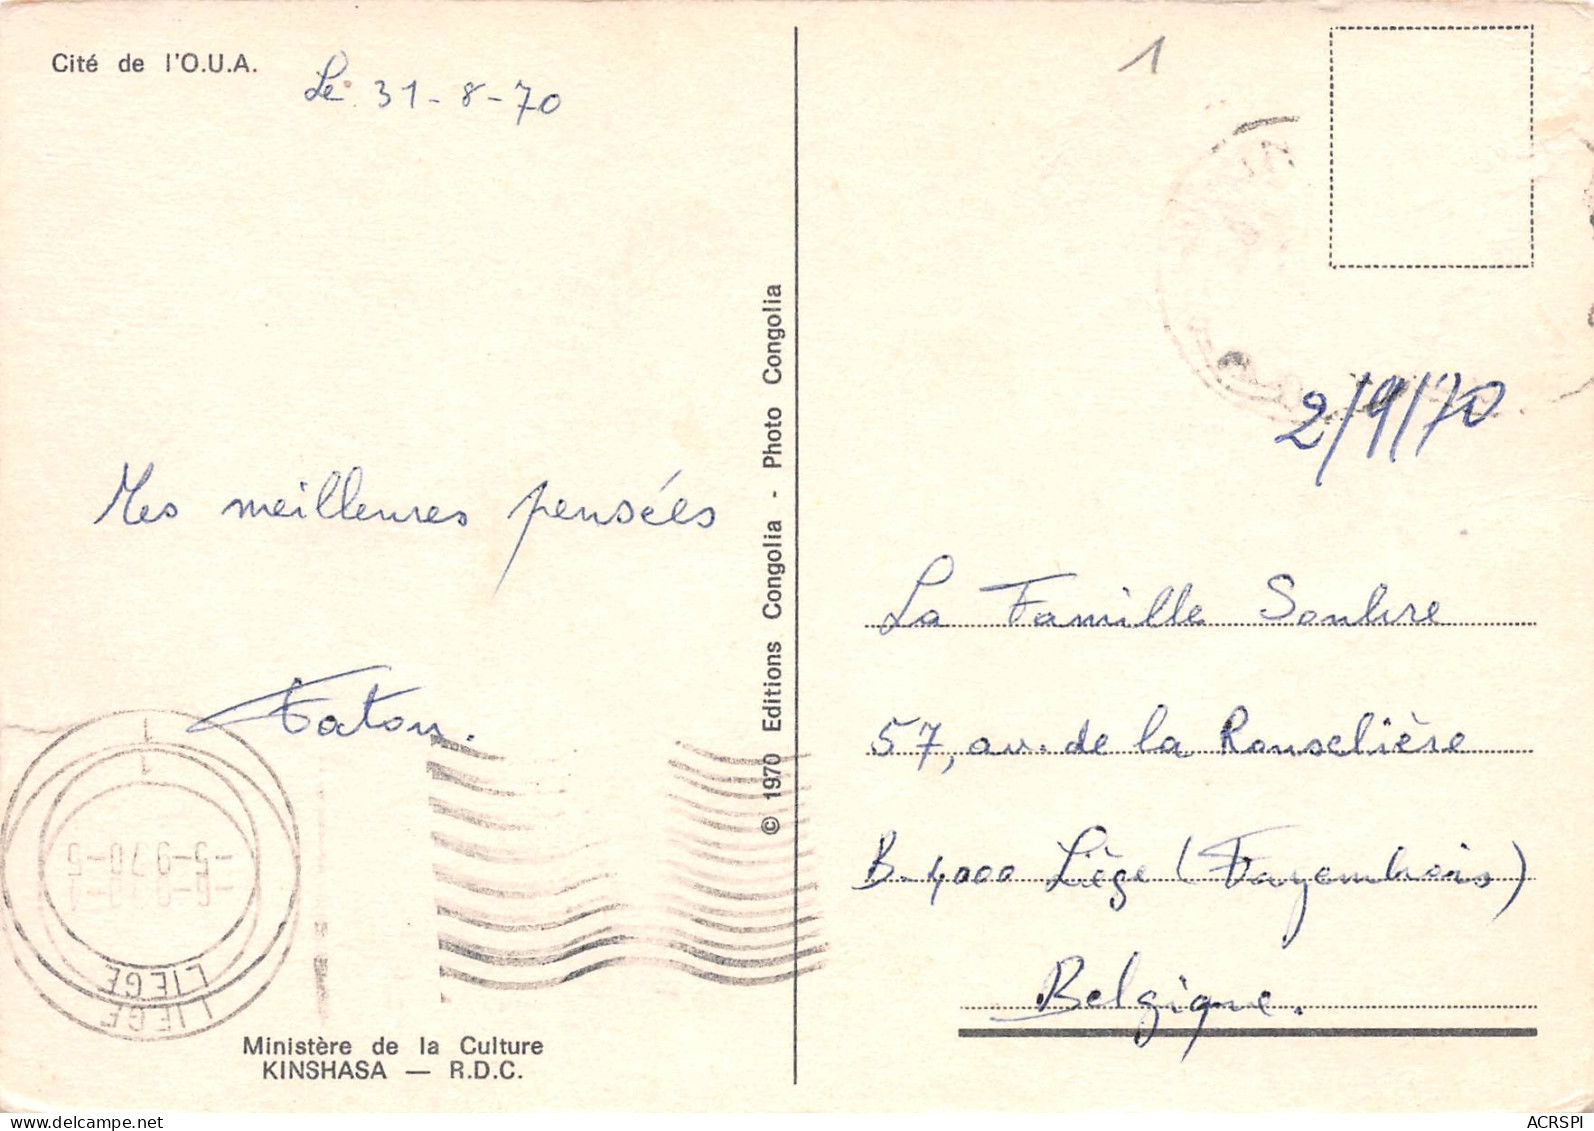 Cité de l'O.U.A.
Le 31-8-70
1
2/9/70
Mes meilleures pensées
Taton.
La Famille Soubre
57, av. de la Rousselière
B-4000 Liège (Fayembois)
Belgique.
© 1970 Editions Congolia - Photo Congolia
1
1
-5-970-5
LIEGE
LIEGE
Ministère de la Culture
KINSHASA — R.D.C.
ACRSPI